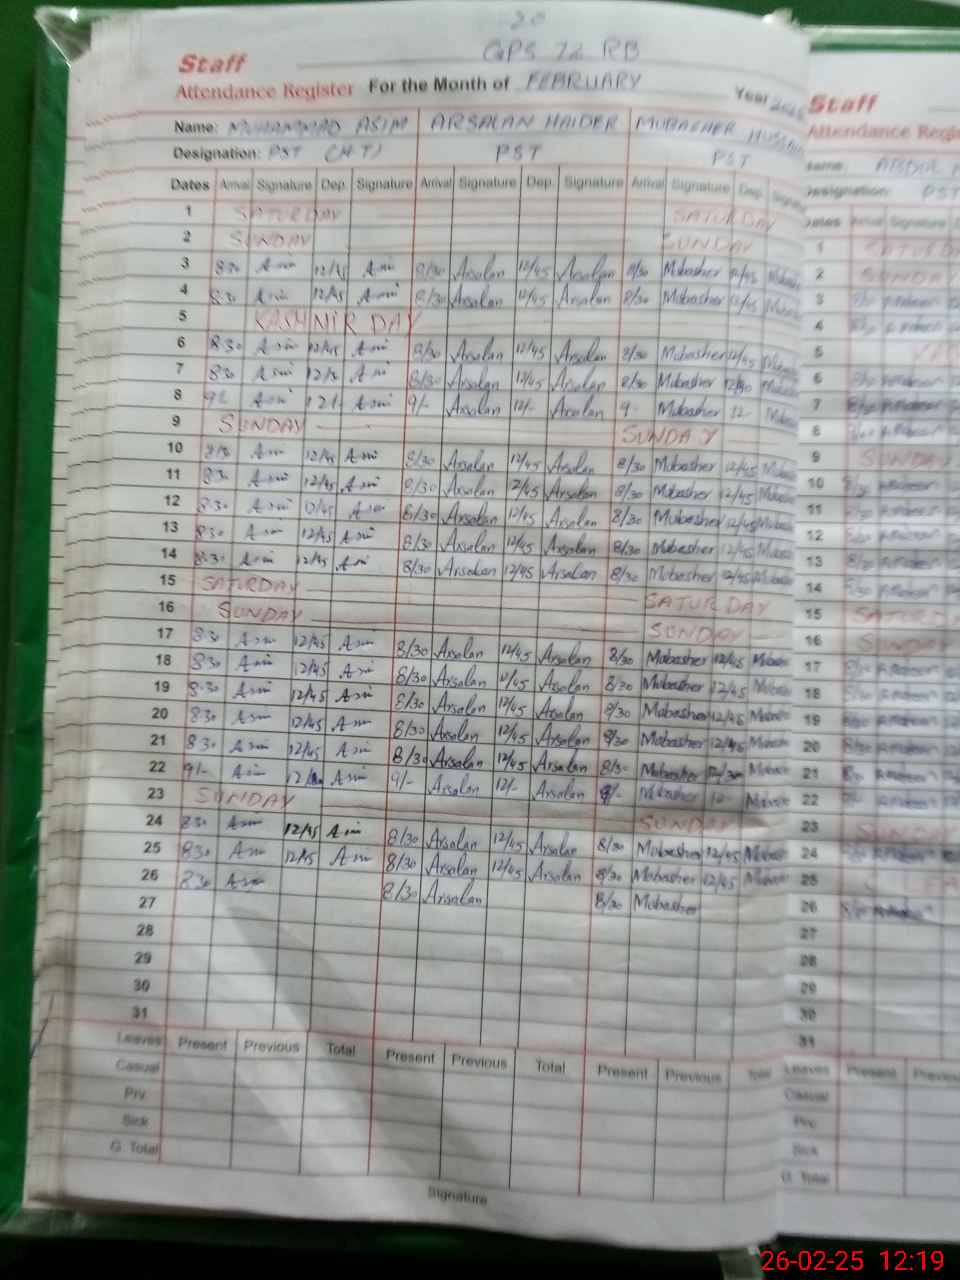 20
GPS 72 RB
Staff
Attendance Register For the Month of FEBRUARY Year
Name: MUHAMMAD ASIM ARSALAN HAIDER MUBASHER HUSSAIN
Designation: PST (H.T) PST PST
Dates Arrival Signature Dep. Signature Arrival Signature Dep. Signature Arrival Signature Dep. Signature
1 SATURDAY SATURDAY
2 SUNDAY SUNDAY
3 830 Asim 12/45 Asim 8/30 Arsalan 12/45 Arsalan 8/30 Mubasher 12/45
4 830 Asim 12/45 Asim 8/30 Arsalan 12/45 Arsalan 8/30 Mubasher 12/45
5 KASHMIR DAY
6 830 Asim 12/45 Asim 8/30 Arsalan 12/45 Arsalan 8/30 Mubasher 12/45
7 830 Asim 12/30 Asim 8/30 Arsalan 12/45 Arsalan 8/30 Mubasher 12/30
8 9/- Asim 12/- Asim 9/- Arsalan 12/- Arsalan 9- Mubasher 12-
9 SUNDAY SUNDAY
10 830 Asim 12/45 Asim 8/30 Arsalan 12/45 Arsalan 8/30 Mubasher 12/45
11 830 Asim 12/45 Asim 8/30 Arsalan 12/45 Arsalan 8/30 Mubasher 12/45
12 830 Asim 12/45 Asim 8/30 Arsalan 12/45 Arsalan 8/30 Mubasher 12/45
13 830 Asim 12/45 Asim 8/30 Arsalan 12/45 Arsalan 8/30 Mubasher 12/45
14 8.30 Asim 12/45 Asim 8/30 Arsalan 12/45 Arsalan 8/30 Mubasher 12/45
15 SATURDAY SATURDAY
16 SUNDAY SUNDAY
17 830 Asim 12/45 Asim 8/30 Arsalan 12/45 Arsalan 8/30 Mubasher 12/45
18 830 Asim 12/45 Asim 8/30 Arsalan 12/45 Arsalan 8/30 Mubasher 12/45
19 8.30 Asim 12/45 Asim 8/30 Arsalan 12/45 Arsalan 8/30 Mubasher 12/45
20 830 Asim 12/45 Asim 8/30 Arsalan 12/45 Arsalan 8/30 Mubasher 12/45
21 830 Asim 12/45 Asim 8/30 Arsalan 12/45 Arsalan 8/30 Mubasher 12/30
22 9/- Asim Asim 9/- Arsalan 12/- Arsalan 9/- Mubasher 12-
23 SUNDAY SUNDAY
24 830 Asim 12/45 Asim 8/30 Arsalan 12/45 Arsalan 8/30 Mubasher 12/45
25 830 Asim 12/45 Asim 8/30 Arsalan 12/45 Arsalan 8/30 Mubasher 12/45
26 830 Asim 8/30 Arsalan 8/30 Mubasher
27
28
29
30
31
Leaves Present Previous Total Present Previous Total Present Previous Total
Casual
Prv.
Sick
G. Total
Signature
Staff
Attendance
PST
Arrival Signature
1
2
3
4
5
6
7
8
9 SUNDAY
10
11
12
13
14
15
16 SUNDAY
17
18
19
20
21
22
23 SUNDAY
24
25
26
27
28
29
30
31
Leaves Present
Casual
Prv.
Sick
G. Total
26-02-25 12:19